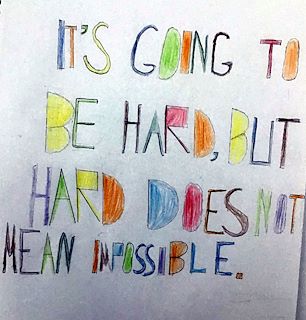 IT'S GOING TO
BE HARD, BUT
HARD DOES NOT
MEAN IMPOSSIBLE.